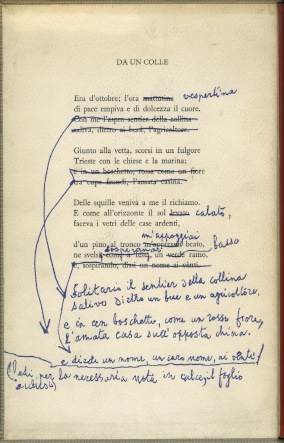 DA UN COLLE
Era d'ottobre; l'ora mattutina vespertina
di pace empiva e di dolcezza il cuore.
Con me l'aspro sentier della collina
saliva, dietro ai buoi, l'agricoltore.
Giunto alla vetta, scorsi in un fulgore
Trieste con le chiese e la marina;
e in un boschetto, rossa come un fiore
tra cupe frondi, l'amata casina.
Delle squille venivä a me il richiamo.
E come all'orizzonte il sol levato calato,
faceva i vetri delle case ardenti,
m'appoggiai
d'un pino al tronco beato, basso
ne svelsi un verde ramo,
e, sospirando, dissi un nome ai venti.
Solitario il sentier della collina
salivo dietro un bue e un agricoltore.
e in un boschetto, come un rosso fiore,
l'amata casa sull'opposta china.
e diede un nome, un caro nome, ai venti!
(Vedi, per la necessaria nota in calce, il foglio
accluso)